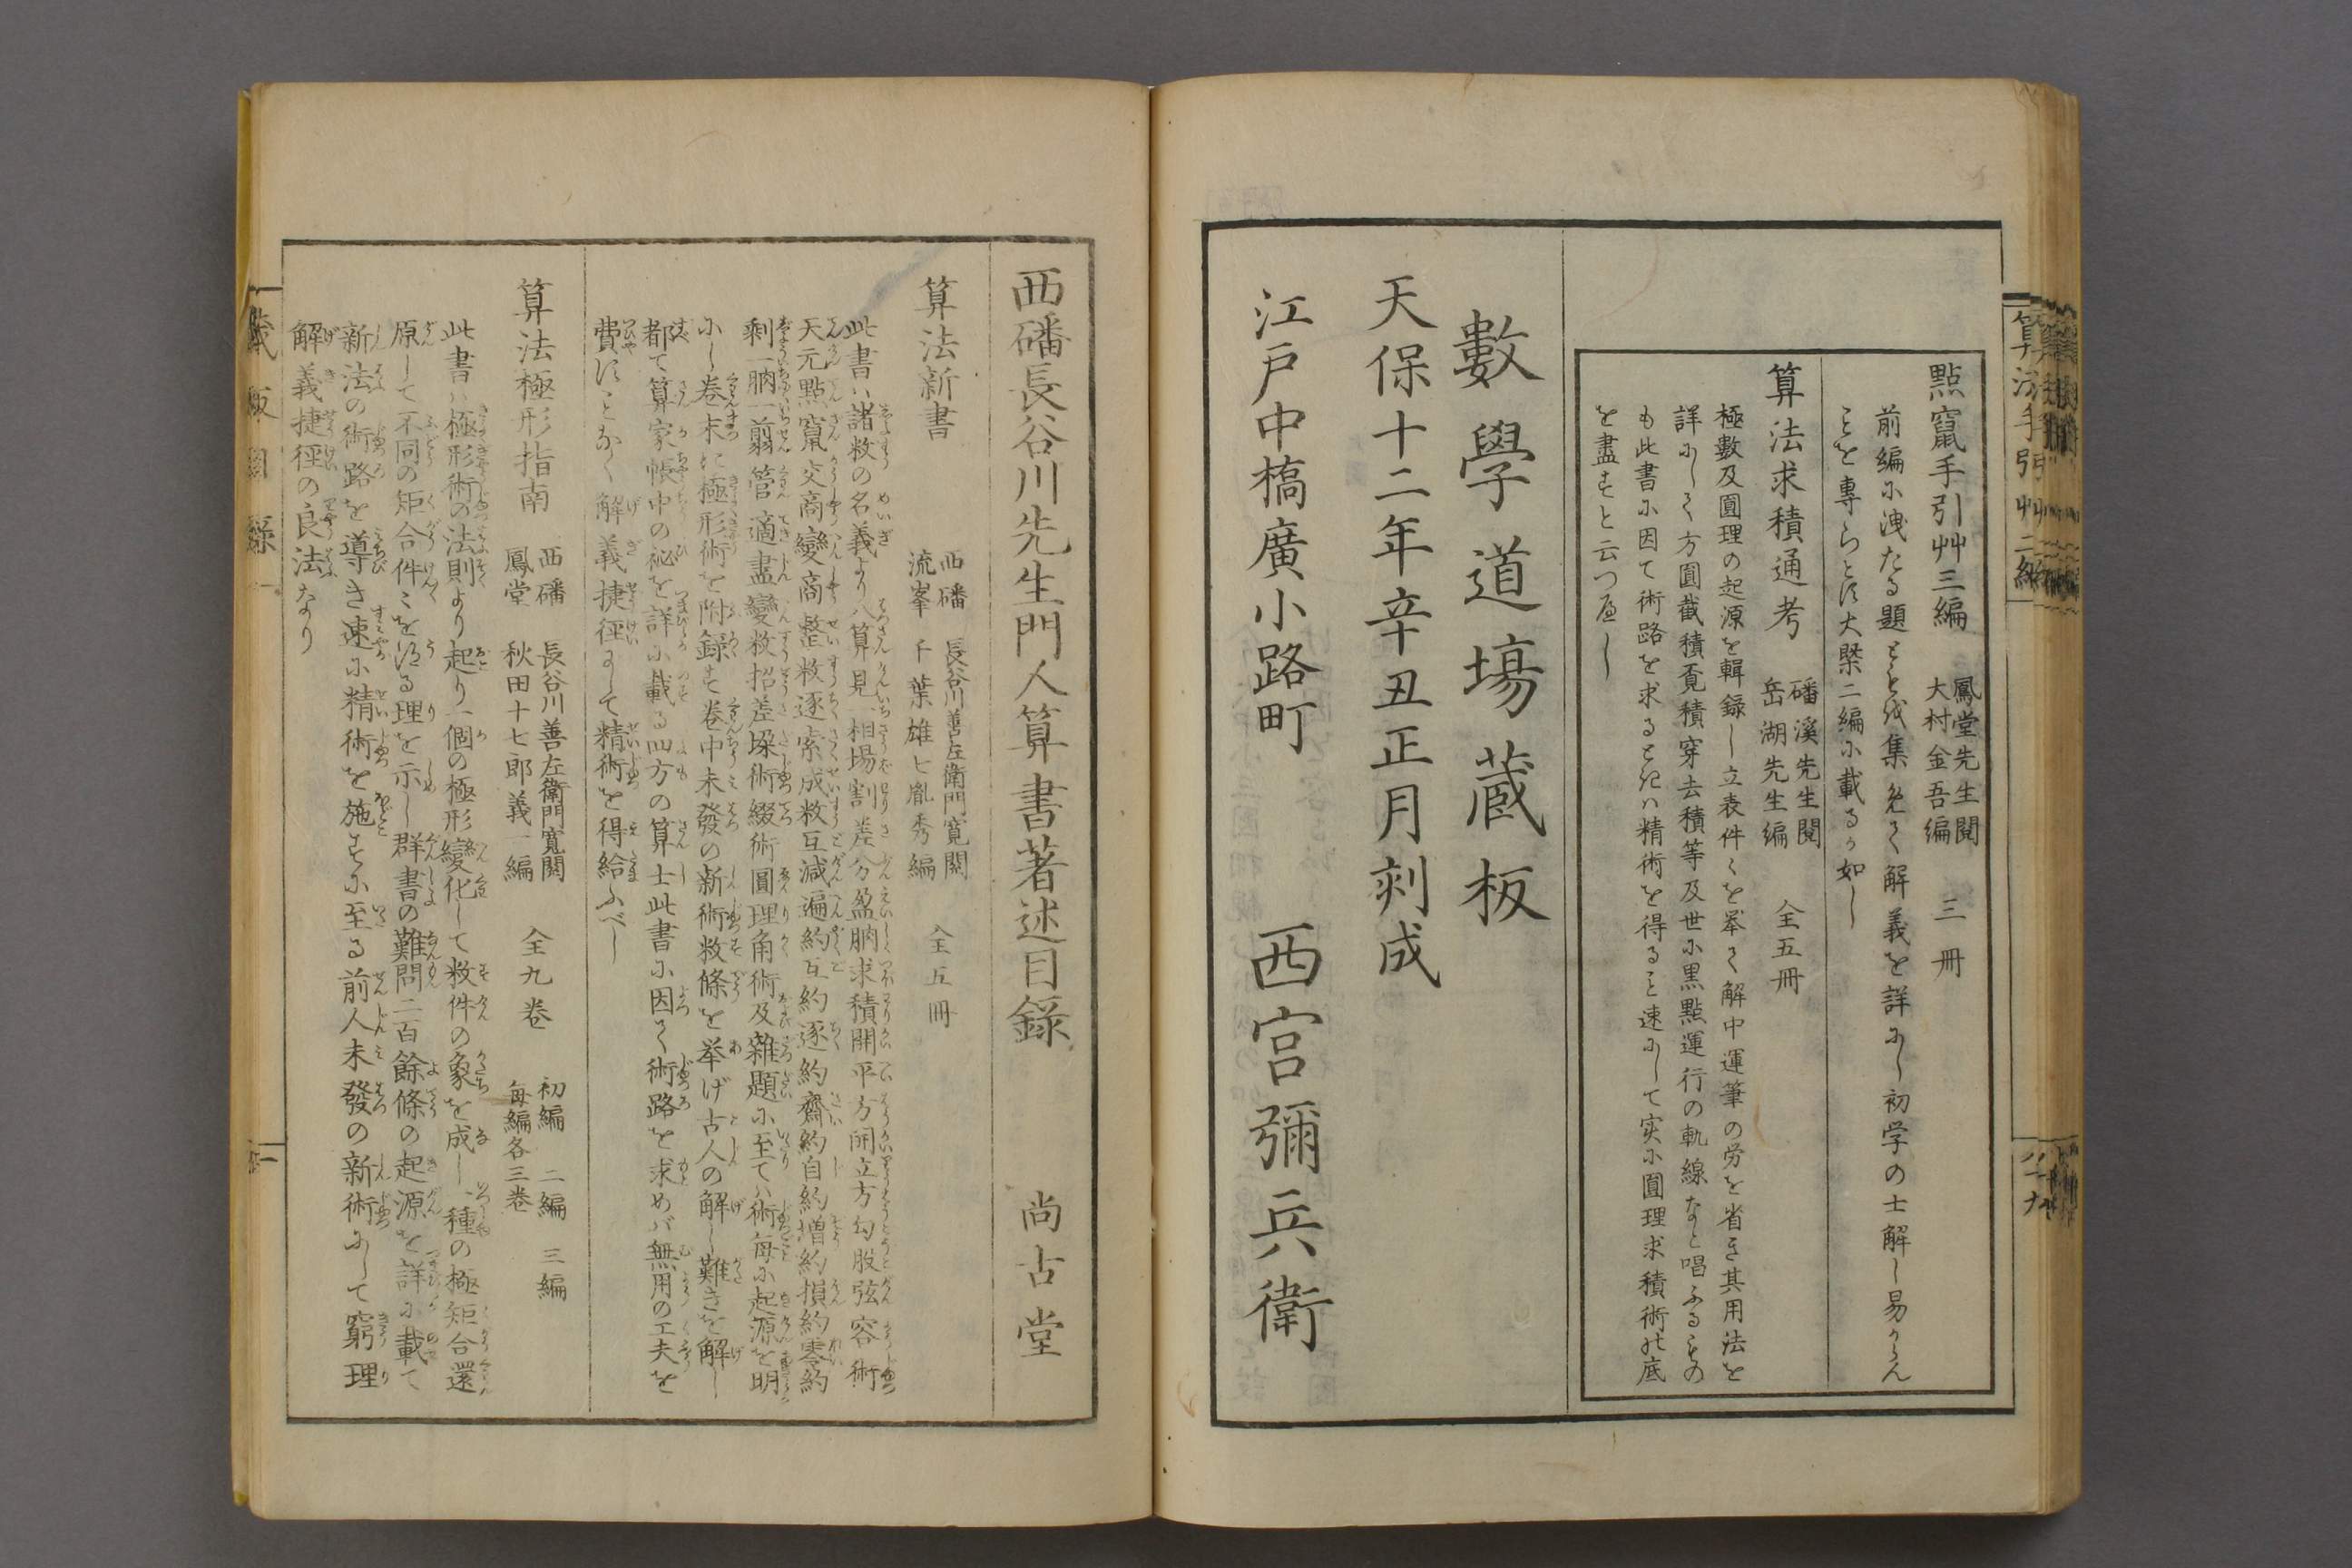 點竄手引艸三編
鳳堂先生閲
大村金吾編
三冊
前編に洩たる題ともを集めて解義を詳にし初学の士解し易からん
ことを專らとす大槩二編に載るか如し
算法求積通考
磻溪先生閲
岳湖先生編
全五冊
極數及圓理の起源を輯録し立表件々を挙て解中運筆の労を省き其用法を
詳にして方圓截積覔積穿去積等及世に黒點運行の軌線なと唱ふるもの
も此書に因て術路を求るときハ精術を得ること速にして実に圓理求積術の底
を盡すと云つへし
數學道塲蔵板
天保十二年辛丑正月刻成
江戸中橋廣小路町　西宮彌兵衛
西磻長谷川先生門人算書著述目録　尚古堂
算法新書
西磻　長谷川善左衛門寛閲
流峯　千葉雄七胤秀編
全五冊
此書ハ諸数の名義より八算見一相場割差分盈朒求積開平方開立方勾股弦容術
天元點竄交商變商整数逐索成数互減遍約互約逐約齊約自約増約損約零約
剰一朒一翦管適盡變数招差垜術綴術圓理角術及雜題に至てハ術毎に起源を明
にし巻末に極形術を附録す巻中未發の新術数條を举げ古人の解し難きを解し
都て算家帳中の祕を詳に載る四方の算士此書に因て術路を求めバ無用の工夫を
費すことなく解義捷径にして精術を得給ふべし
算法極形指南
西磻　長谷川善左衛門寛閲
鳳堂　秋田十七郎義一編
全九巻
初編　二編　三編
毎編各三巻
此書ハ極形術の法則より起り一個の極形變化して数件の象を成し一種の極矩合還
原して不同の矩合件々を得る理を示し群書の難問二百餘條の起源を詳に載て
新法の術路を導き速に精術を施すに至る前人未發の新術にして窮理
解義捷徑の良法なり
算法手引艸二編